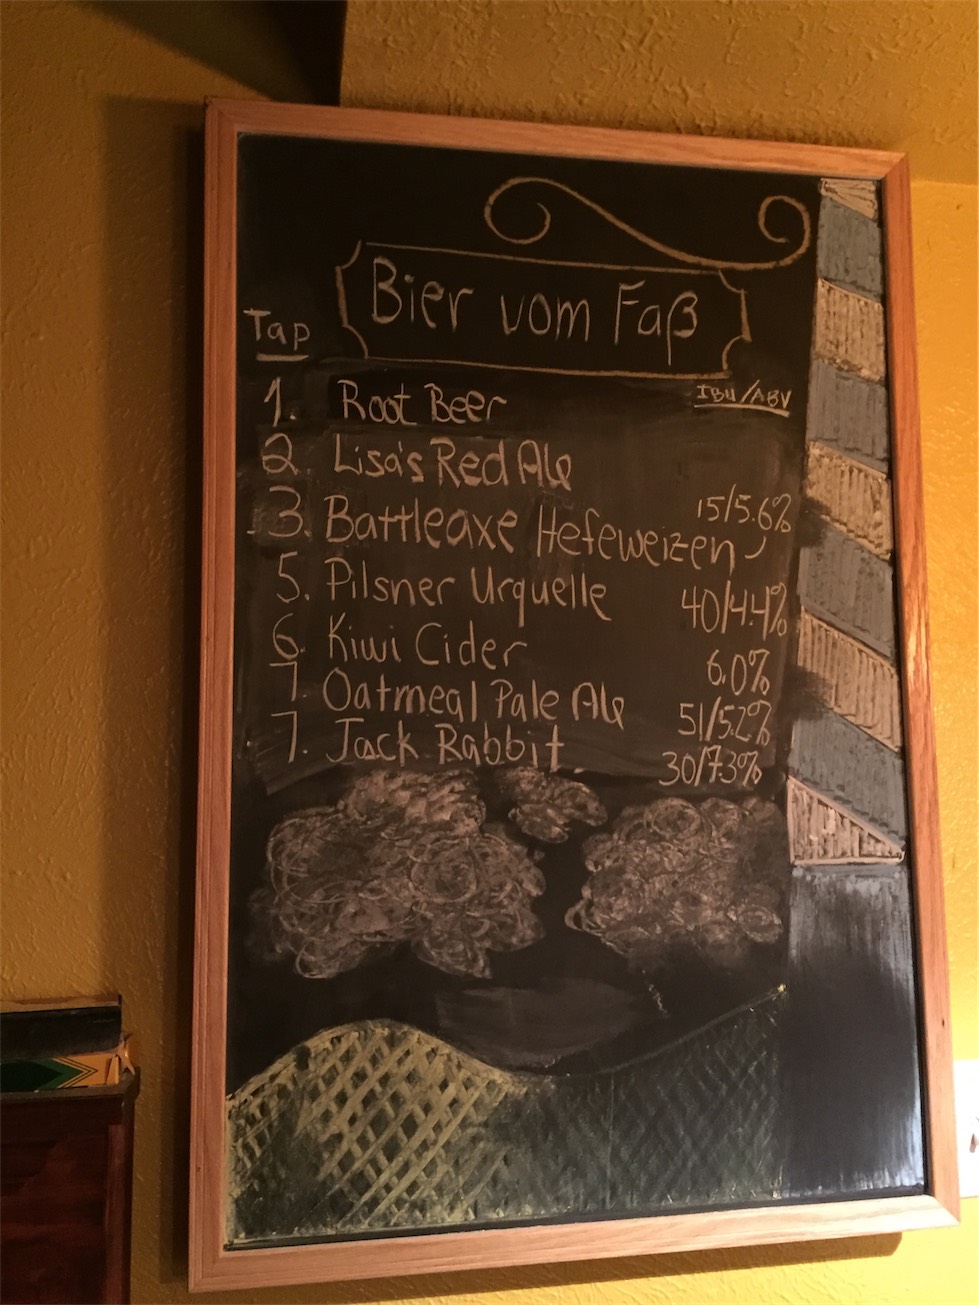 Bier vom Faß
Tap
IBU/ABV
1. Root Beer
2. Lisa's Red Ale
3. Battleaxe Hefeweizen 15/5.6%
5. Pilsner Urquelle 40/4.4%
6. Kiwi Cider 6.0%
7. Oatmeal Pale Ale 51/5.2%
7. Jack Rabbit 30/7.3%